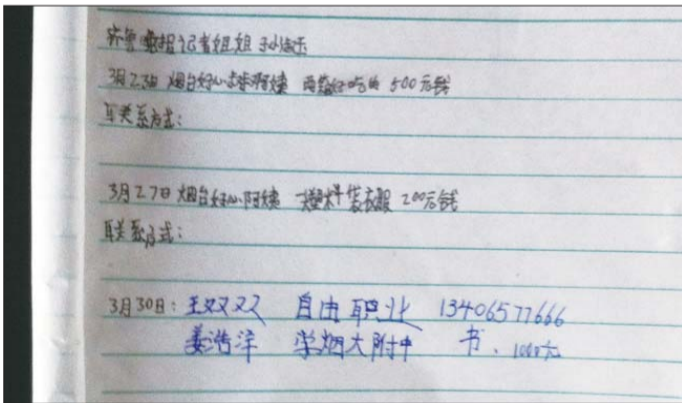 齐鲁晚报记者姐姐 孙淑玉
3月23日 烟台好心李阿姨 两袋好吃的 500元钱
联系方式:
3月27日 烟台好心阿姨 一塑料袋衣服 200元钱
联系方式:
3月30日: 王双双 自由职业 13406577666
姜浩洋 学烟大附中 书、1000元